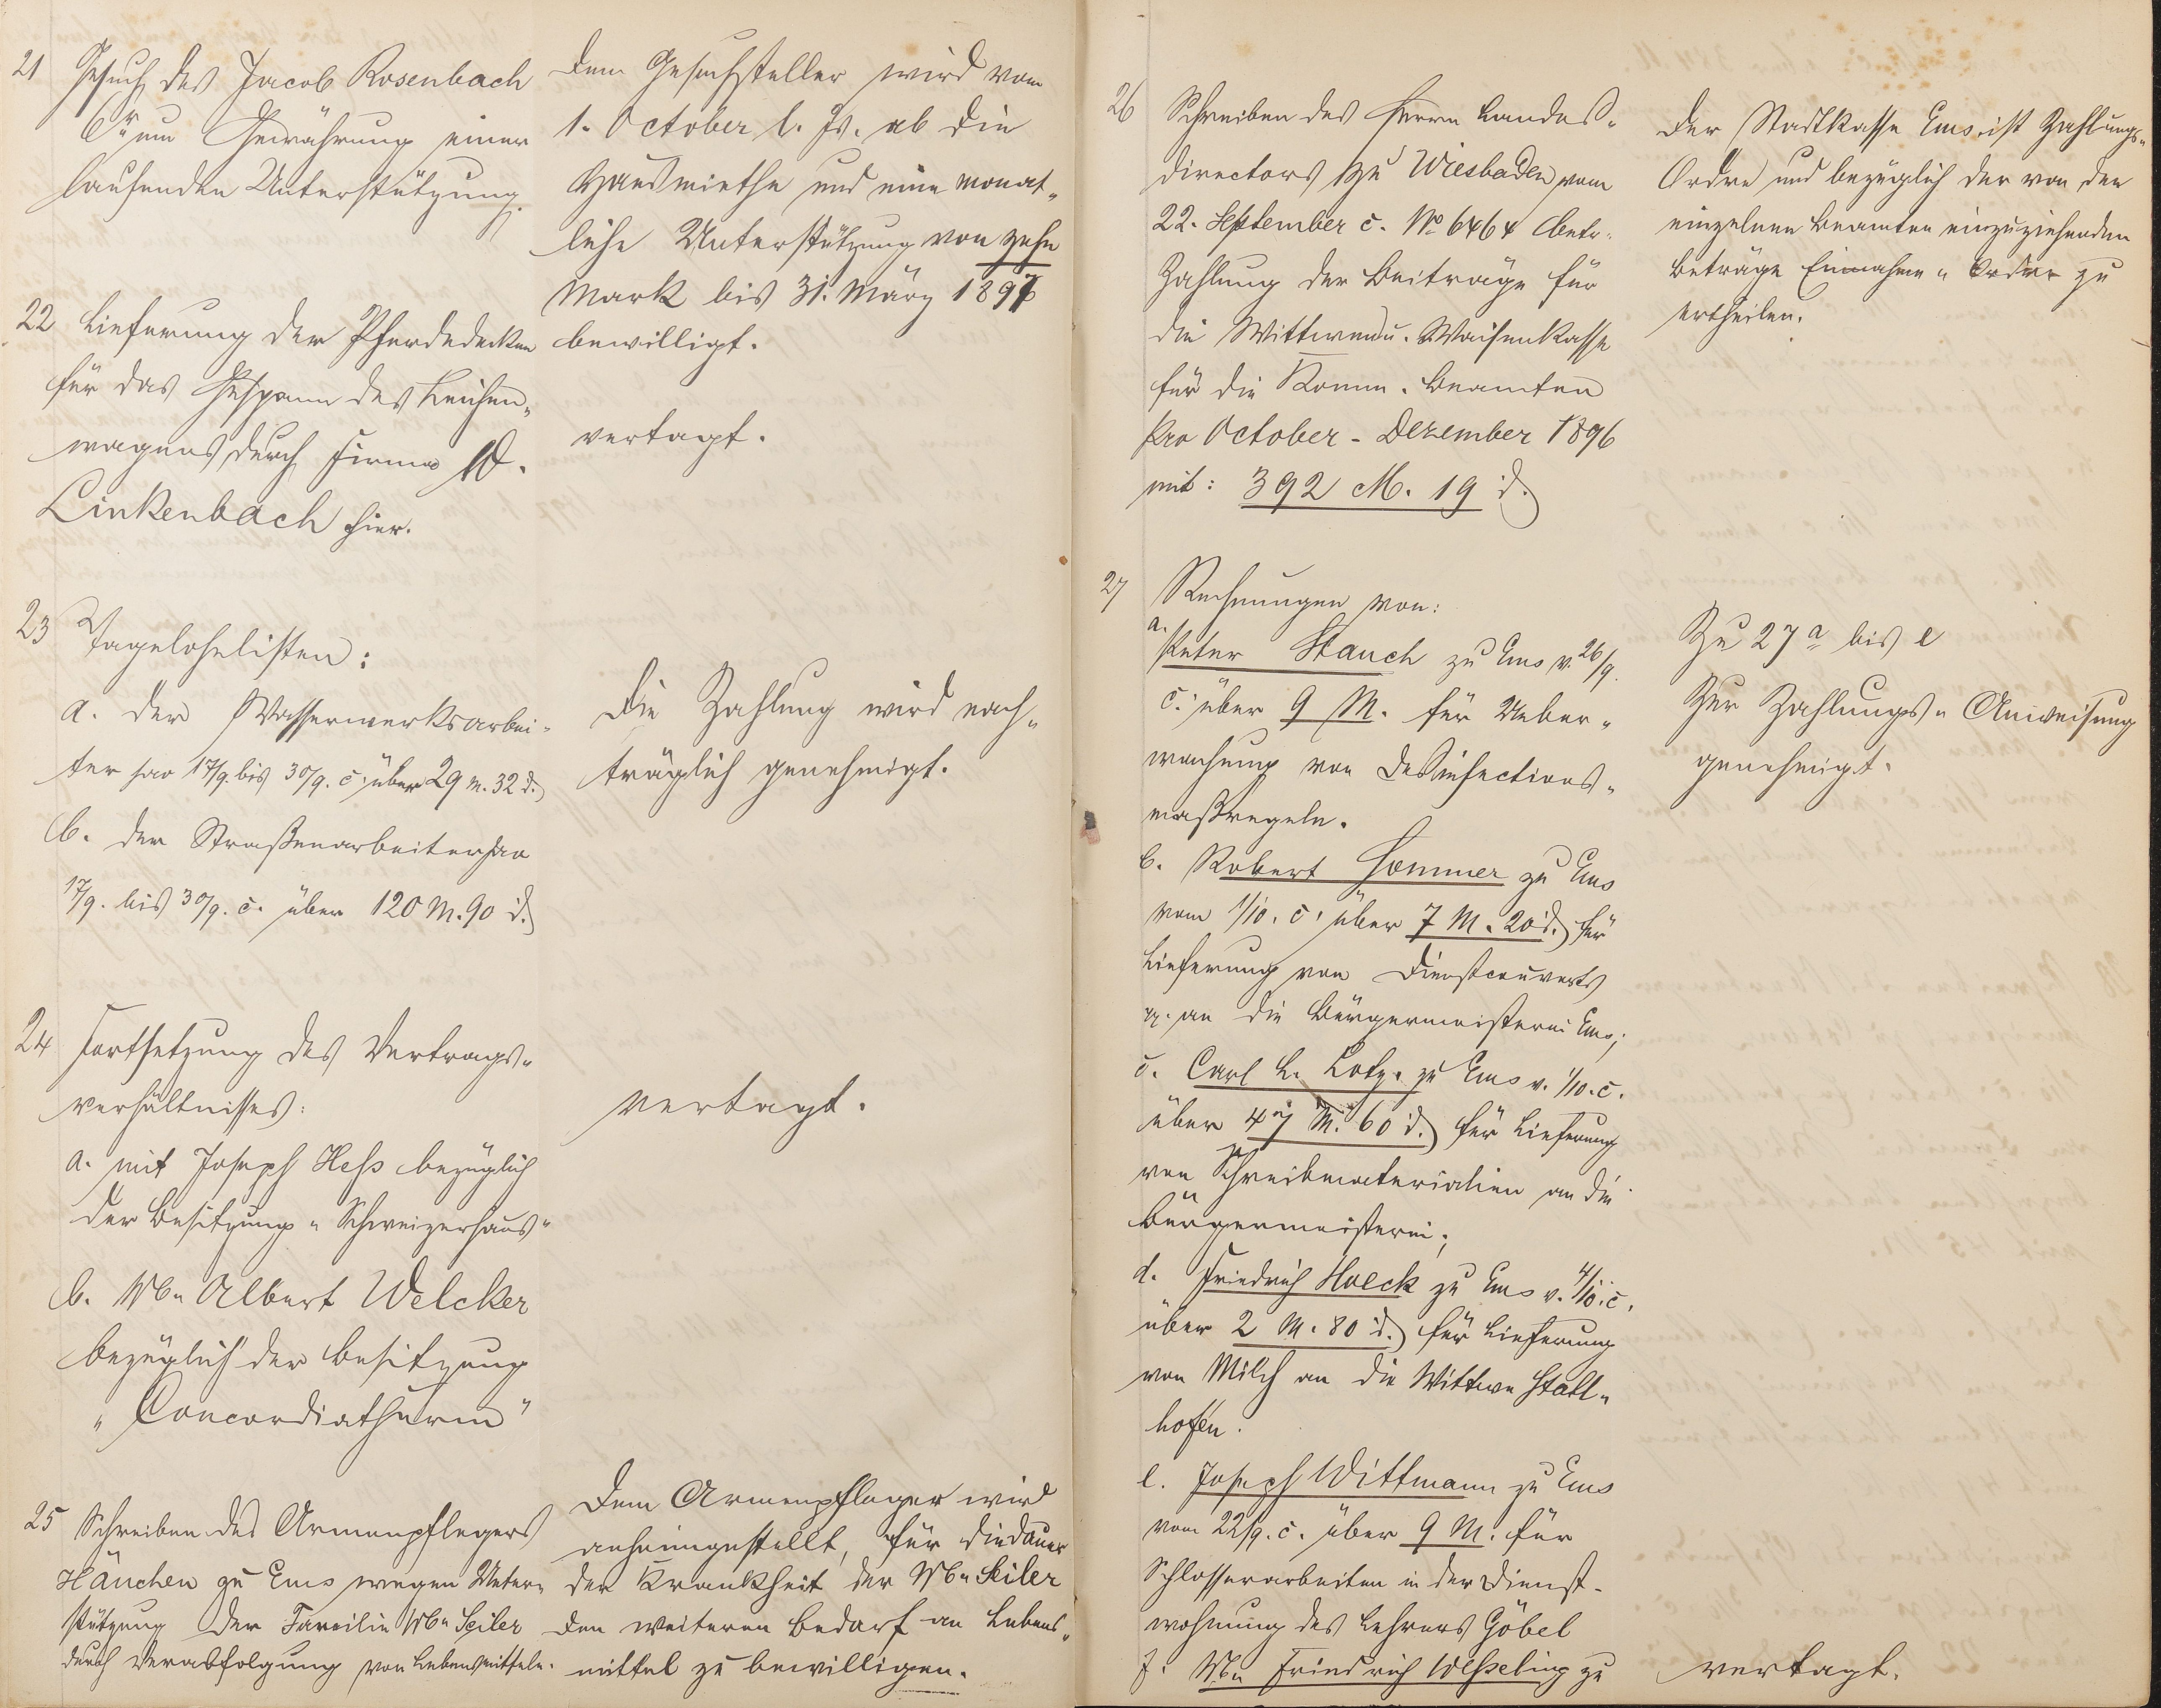 21 Gesuch des Jacob Rosenbach
6r um Gewährung einer
laufenden Unterstützung.
Dem Gesuchsteller wird vom
1. October l. Js. ab die
Hausmiethe und eine monat-
liche Unterstützung von zehn
Mark bis 31. März 1897
bewilligt.
22 Lieferung der Pferdedecken
für das Gespann des Leichen-
wagens durch Firma W.
Linkenbach hier.
vertagt.
23 Tagelohnlisten:
a. der Wasserwerksarbei-
ter pro 17/9. bis 30/9. c. über 29 M. 32 d.
b. der Straßenarbeiter pro
17/9. bis 30/9. c. über 120 M. 90 d.
Die Zahlung wird nach-
träglich genehmigt.
24 Fortsetzung des Vertrags-
verhältnisses:
a. mit Joseph Heß bezüglich
der Besitzung "Schweizerhaus"
b. Wb. Albert Welcker
bezüglich der Besitzung
"Concordiathurm"
vertagt.
25 Schreiben des Armenpflegers
Hänchen zu Ems wegen Unter-
stützung der Familie Wb. Seiler
durch Verabfolgung von Lebensmitteln.
Dem Armenpfleger wird
anheimgestellt, für die Dauer
der Krankheit der Wb. Seiler
den weiteren Bedarf an Lebens-
mittel zu bewilligen.
26 Schreiben des Herrn Landes-
directors zu Wiesbaden vom
22. September c. No 6464 betr.
Zahlung der Beiträge für
die Wittwen u. Waisenkasse
für die Komm. Beamten
pro October - Dezember 1896
mit: 392 M. 19 d.
Der Stadtkasse Ems ist Zahlungs-
Ordre und bezüglich der von den
einzelnen Beamten einzuziehenden
Beträge Einnahme-Ordre zu
ertheilen.
27 Rechnungen von:
a. Peter Stauch zu Ems v. 26/9.
c. über 9 M. für Ueber-
wachung von Desinfections-
maßregeln.
b. Robert Sommer zu Ems
vom 1/10. c. über 7 M. 20 d. für
Lieferung von Dienstcouverts
pp. an die Bürgermeisterei Ems;
c. Carl L. Lotz. zu Ems v. 1/10. c.
über 47 M. 60 d. für Lieferung
von Schreibmaterialien an die
Bürgermeisterei;
d. Friedrich Hoeck zu Ems v. 4/10. c.
über 2 M. 80 d. für Lieferung
von Milch an die Wittwe Stall-
hofen.
e. Joseph Wittmann zu Ems
vom 22/9. c. über 9 M. für
Schlosserarbeiten in der Dienst-
wohnung des Lehrers Göbel
f. Wb. Friedrich Weßeling zu
Zu 27 a bis e
Zur Zahlungs-Anweisung
genehmigt.
vertagt.